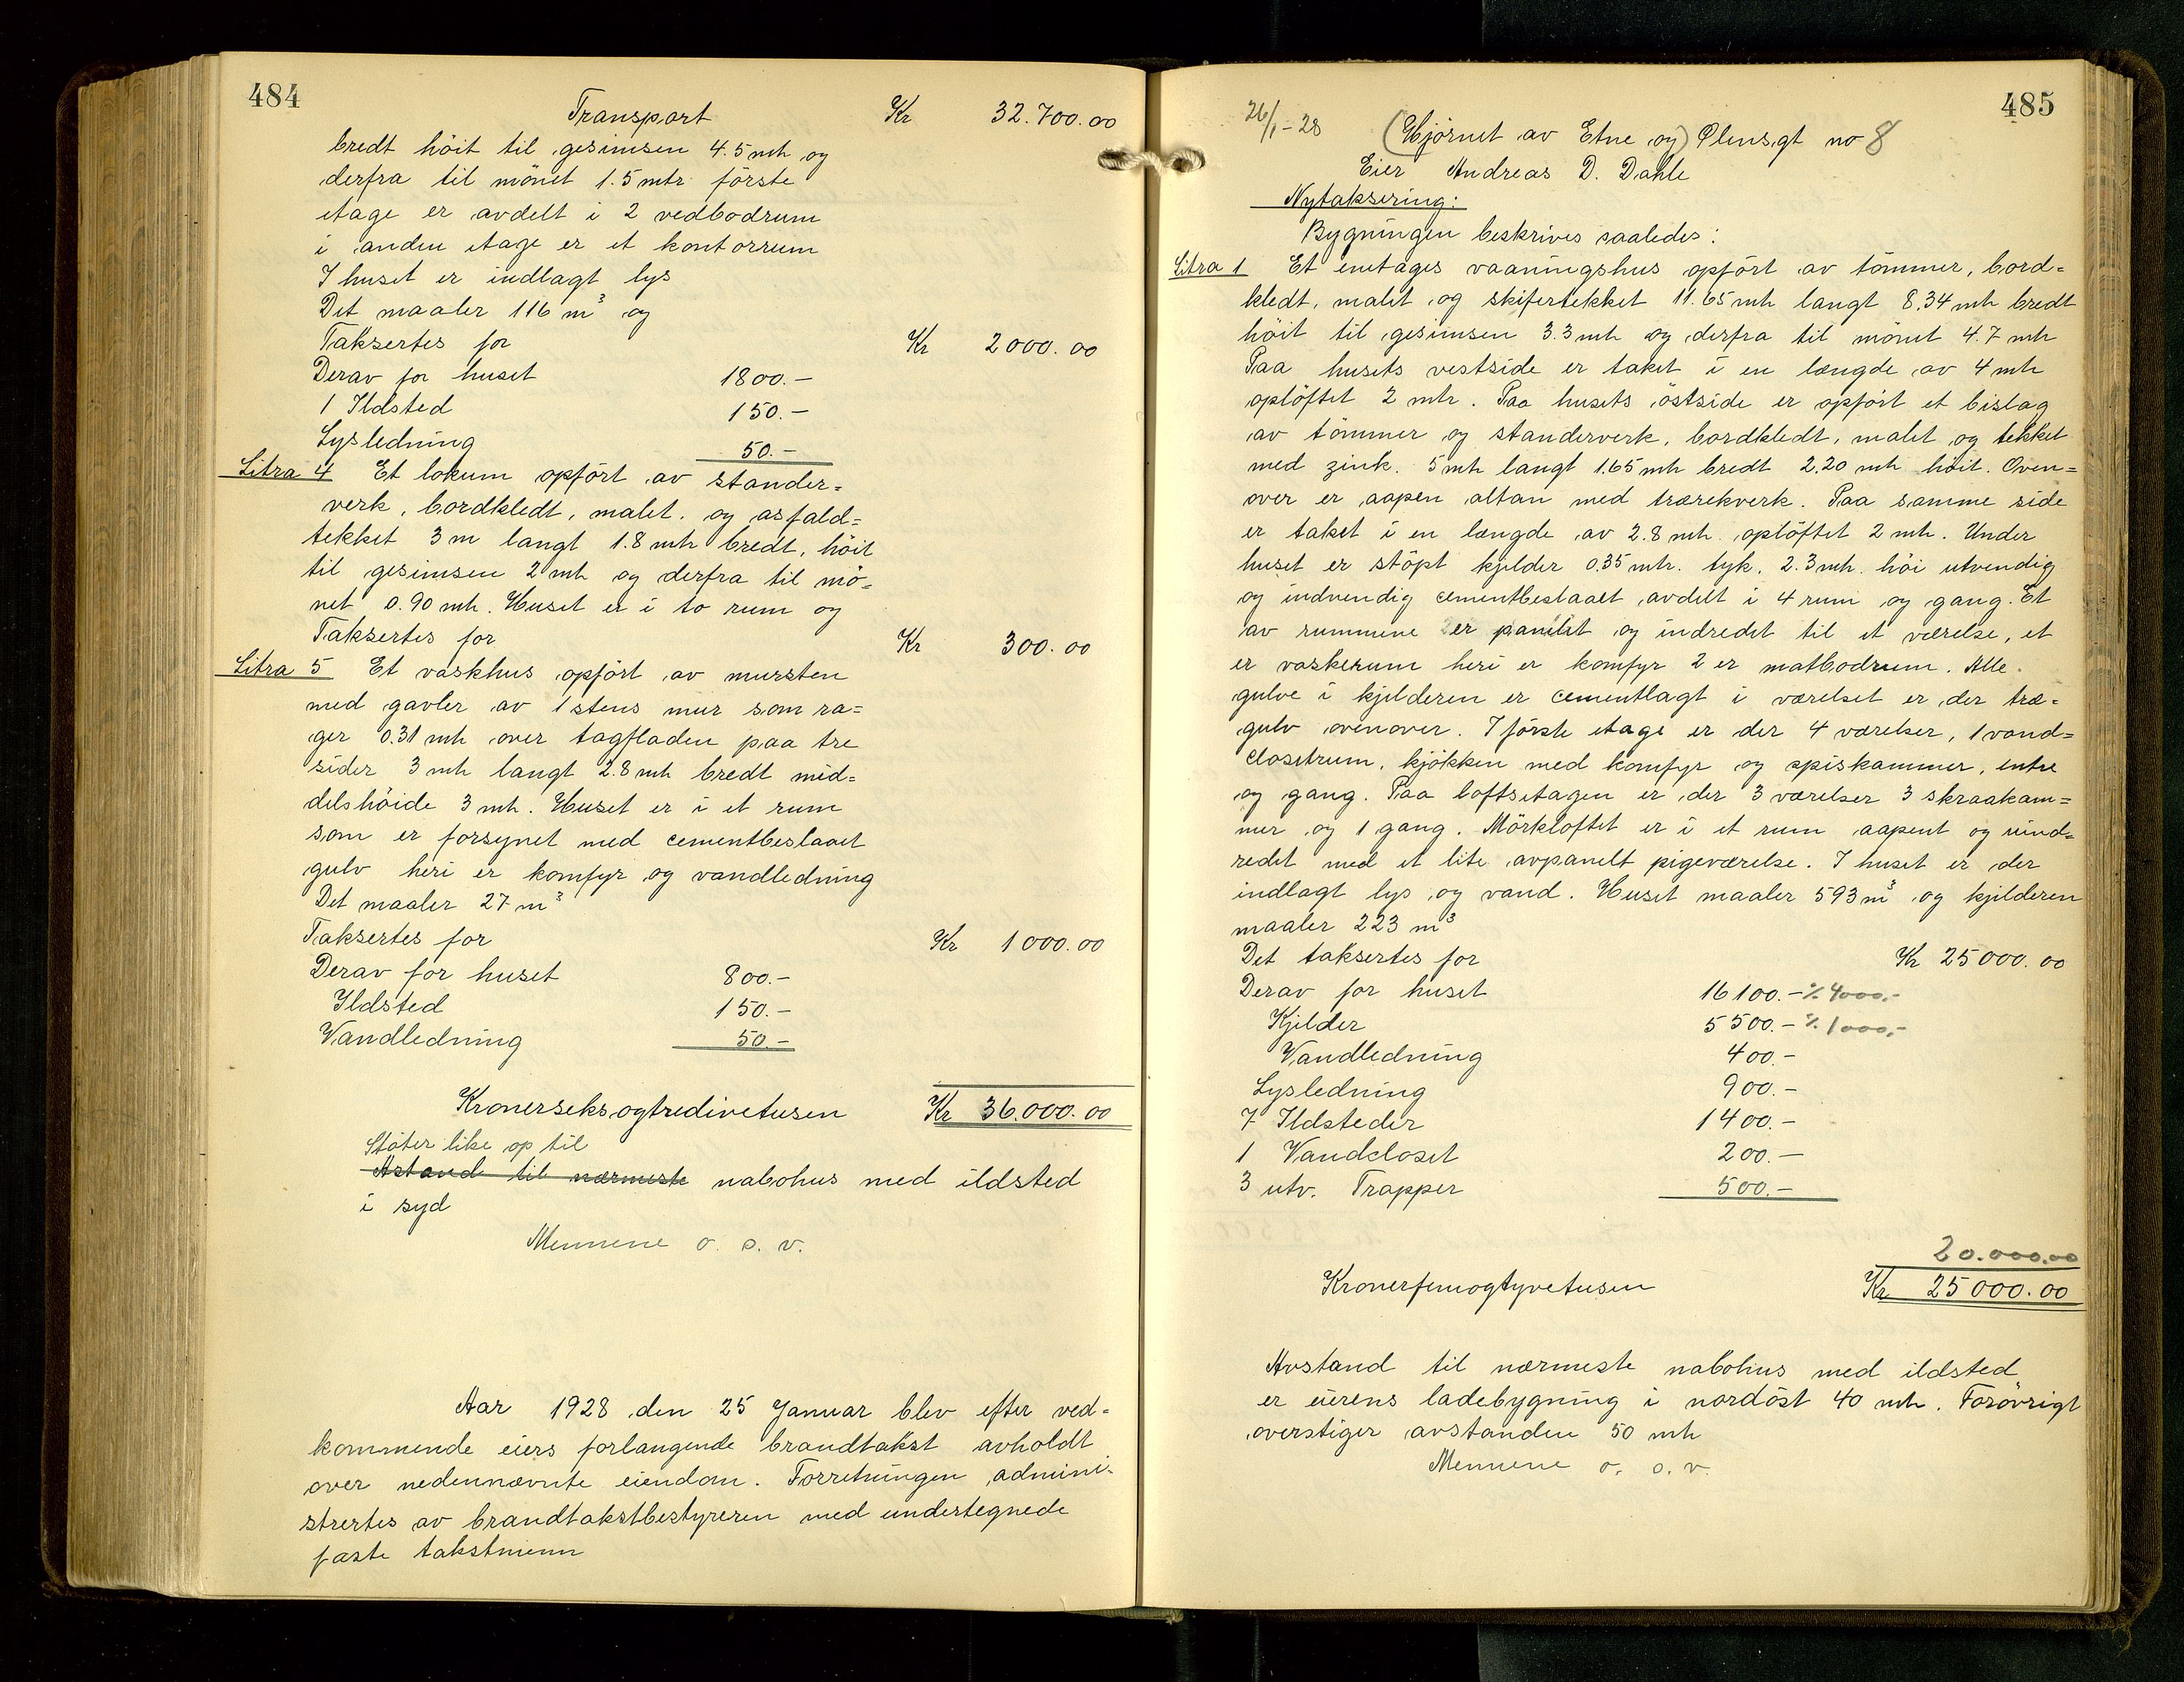 484
Transport Kr 32.700.00
bredt höit til gesimsen 4.5 mtr og
derfra til mönet 1.5 mtr förste
etage er avdelt i 2 vedbodrum
i anden etage er et kontorrum
I huset er indlagt lys
Det maaler 116 m³ og
Taksertes for Kr 2000.00
Derav for huset 1800.-
1 Ildsted 150.-
Lysledning 50.-
Litra 4 Et lokum opfört av stander=
verk, bordkledt, malet. og asfald=
tekket 3 m langt 1.8 mtr bredt, höit
til gesimsen 2 mtr og derfra til mö-
net 0.90 mtr. Huset er i to rum og
Taksertes for Kr 300.00
Litra 5 Et vaskhus opfört av mursten
med gavler av 1 stens mur som ra=
ger 0.31 mtr over tagfladen paa tre
sider 3 mtr langt 2.8 mtr bredt mid=
delshöide 3 mtr. Huset er i et rum
som er forsynet med cementbeslaaet
gulv heri er komfyr og vandledning
Det maaler 27 m³
Taksertes for Kr 1000.00
Derav for huset 800.-
Ildsted 150.-
Vandledning 50.-
Kronerseksogtredivetusen Kr 36.000.00
Stöter like op til
Astand til nærmeste nabohus med ildsted
i syd
Mennene o. s. v.
Aar 1928 den 25 Januar blev efter ved-
kommende eiers forlangende brandtakst avholdt
over nedennævnte eiendom. Forretningen admini-
strertes av brandtakstbestyreren med undertegnede
faste takstmenn
485
26/1-28 (Hjörnet av Etne og) Olensgt no 8
Eier Andreas D. Dahle
Nytaksering:
Bygningen beskrives saaledes:
Litra 1 Et enetages vaaningshus opfört av tömmer, bord=
kledt, malet og skifertekket 11.65 mtr langt 8.34 mtr bredt
höit til gesimsen 3.3 mtr og derfra til mönet 4.7 mtr
Paa husets vestside er taket i en længde av 4 mtr
oplöftet 2 mtr. Paa husets östside er opfört et bislag
av tömmer og standerverk, bordkledt, malet og tekket
med zink. 5 mtr langt 1.65 mtr bredt 2.20 mtr höit. Oven=
over er aapen altan med trærekverk. Paa samme side
er taket i en længde av 2.8 mtr oplöftet 2 mtr. Under
huset er stöpt kjelder 0.35 mtr. tyk. 2.3 mtr. höi utvendig
og indvendig cementbeslaaet avdelt i 4 rum og gang. Et
av rummene er panelet og indredet til et værelse, et
er vaskerum heri er komfyr 2 er matbodrum. Alle
gulve i kjelderen er cementlagt i værelset er der træ-
gulv ovenover. I förste etage er der 4 værelser, 1 vand=
closetrum, kjökken med komfyr og spiskammer, entre
og gang. Paa loftsetagen er der 3 værelser 3 skraakam=
mer og 1 gang. Mörkloftet er i et rum aapent og uind=
redet med et lite avpanelt pigeværelse. I huset er der
indlagt lys og vand. Huset maaler 593 m³ og kjelderen
maaler 223 m³
Det taksertes for Kr 25000.00
Derav for huset 16100.- ٪ 4000.-
Kjelder 5500.- ٪ 1000.-
Vandledning 400.-
Lysledning 900.-
7 Ildsteder 1400.-
1 Vandcloset 200.-
3 utv. Trapper 500.-
20.000.00
Kronerfemogtyvetusen Kr 25000.00
Avstand til nærmeste nabohus med ildsted
er eierens ladebygning i nordöst 40 mtr. Forövrigt
overstiger avstanden 50 mtr
Mennene o. s. v.